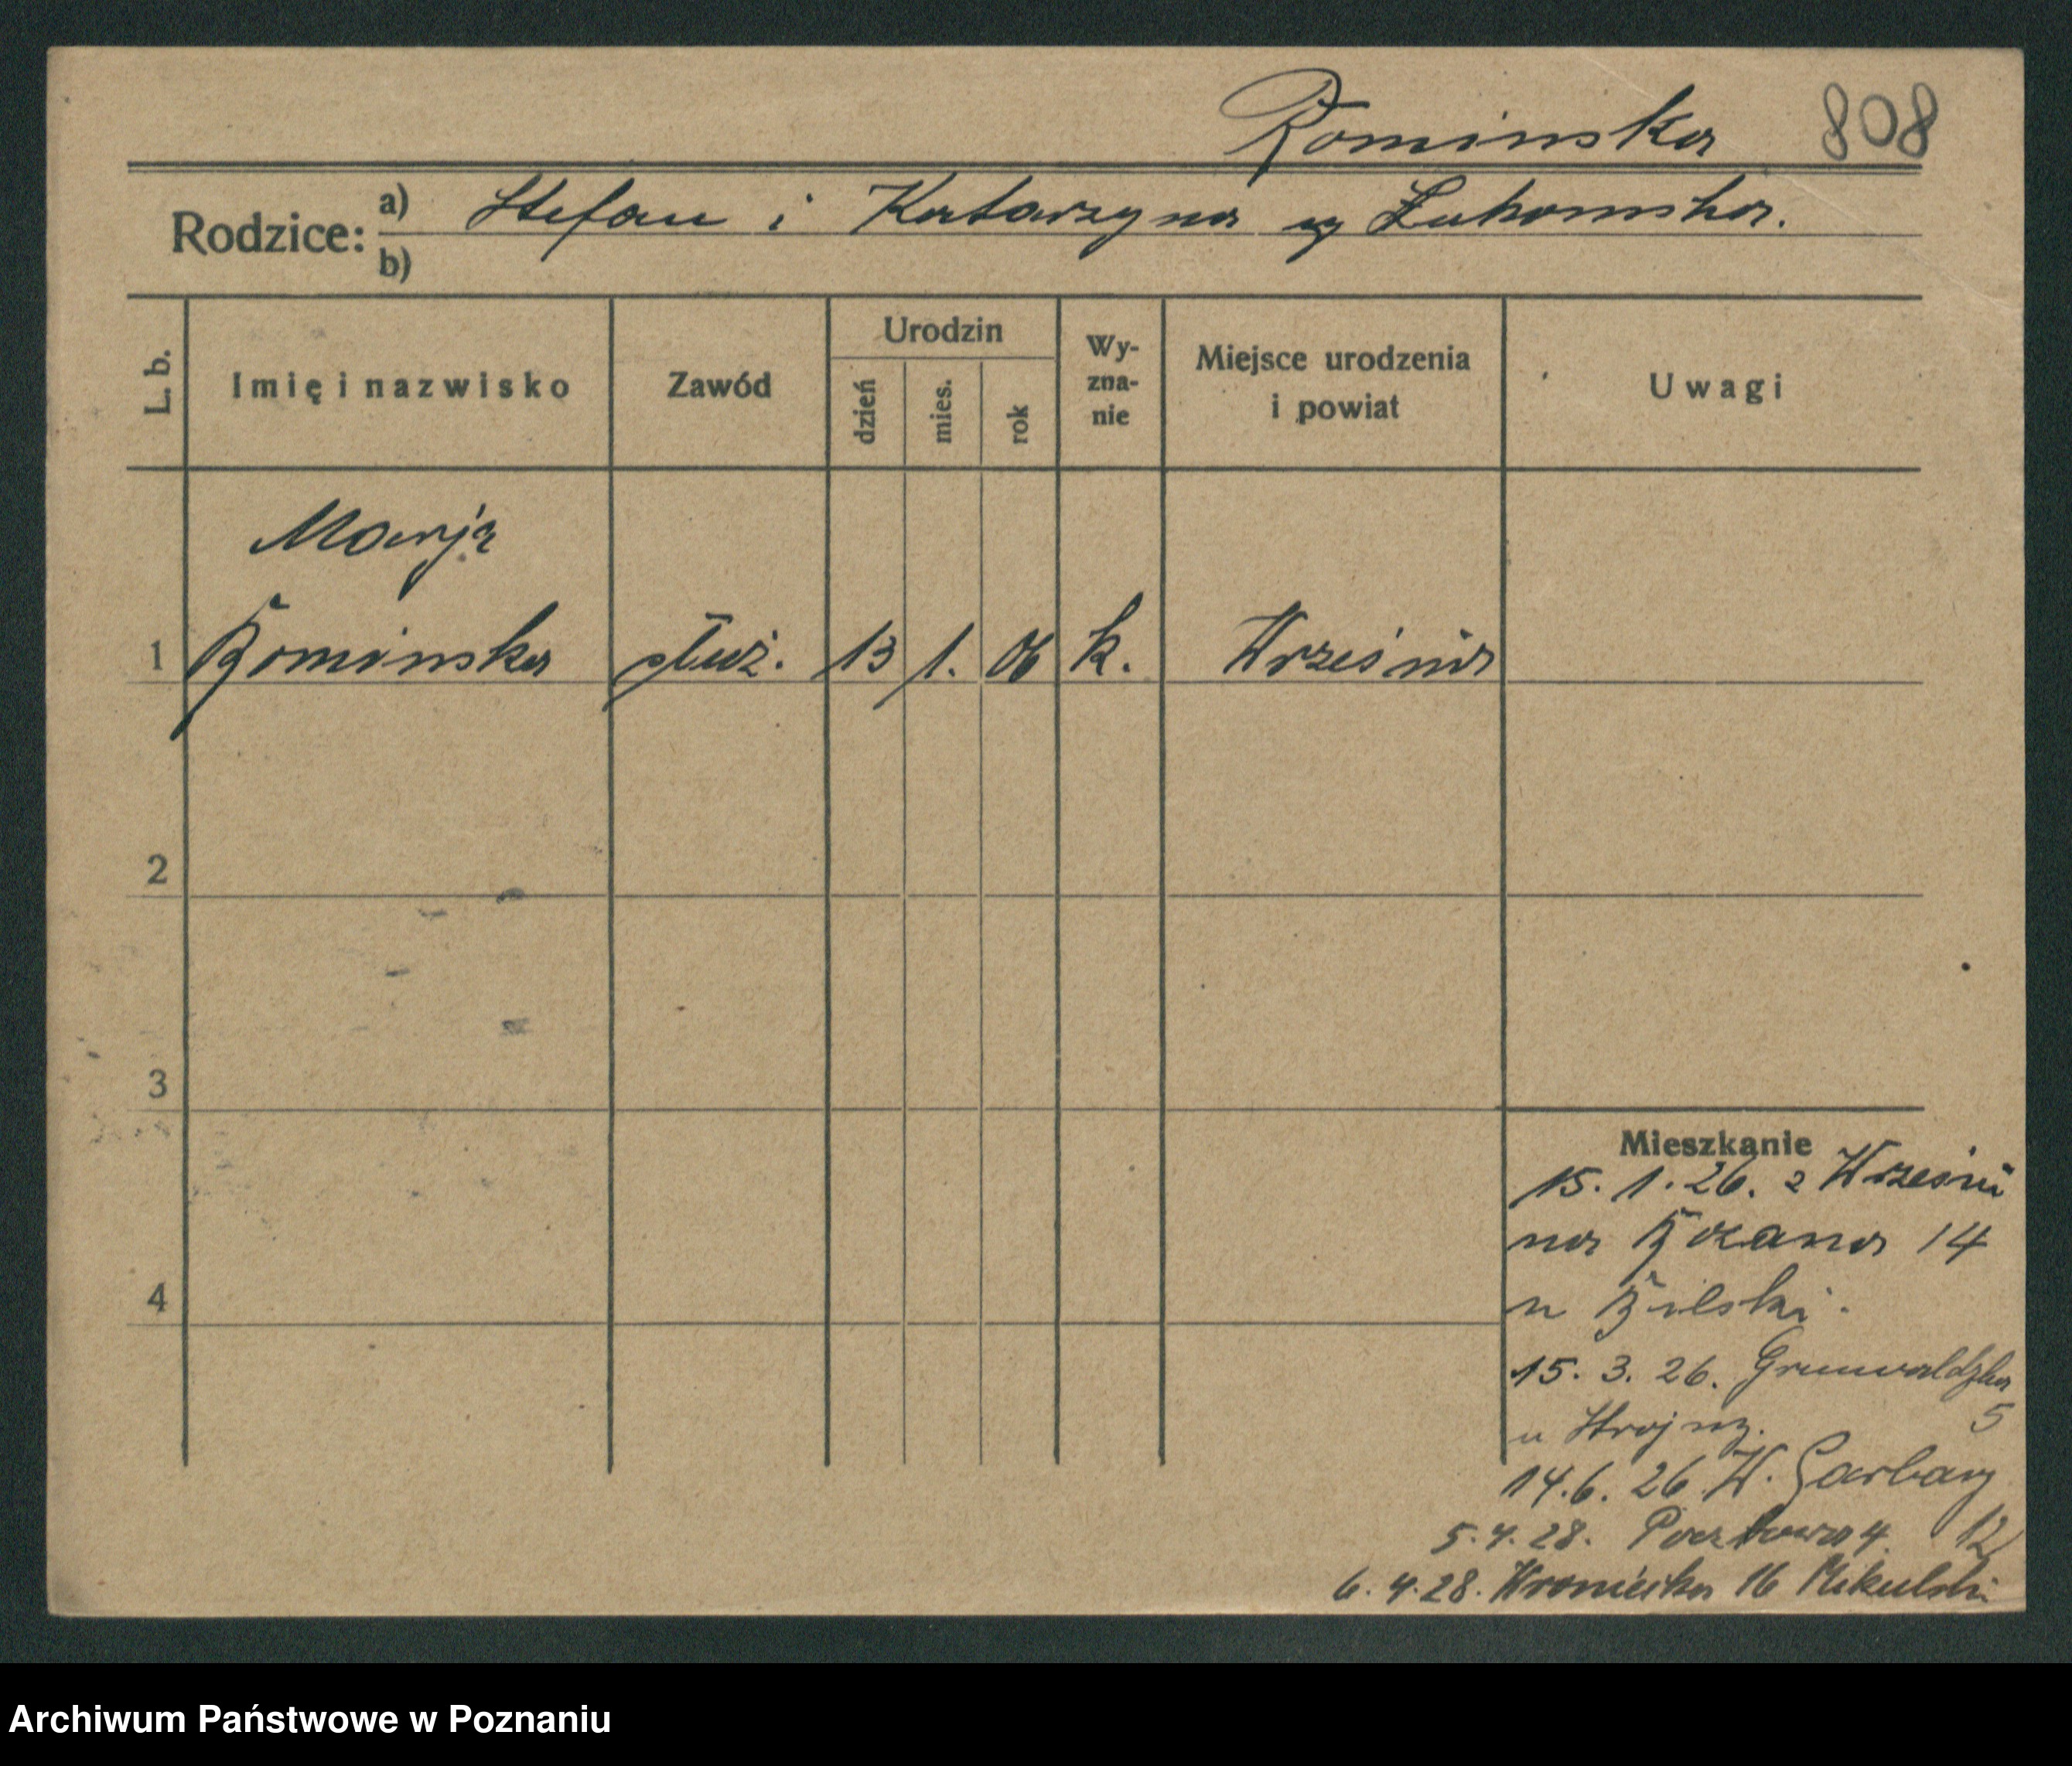 Rominska 808
Rodzice: a) Stefan i Katarzyna z Łukomska.
b)
L. b.
Imię i nazwisko
Zawód
Urodzin
dzień
mies.
rok
Wy-
zna-
nie
Miejsce urodzenia
i powiat
Uwagi
Marja
1 Rominska służ. 13 1. 06 k. Września
2
3
4
Mieszkanie
15. 1. 26. z Wrześni
na Różana 14
u Bilski.
15. 3. 26. Grunwaldzka
u Strojny. 5
14. 6. 26 W. Garbary
12
5. 4. 28. Pocztowa 4.
6. 4. 28. Wroniecka 16 Mikulski
Archiwum Państwowe w Poznaniu